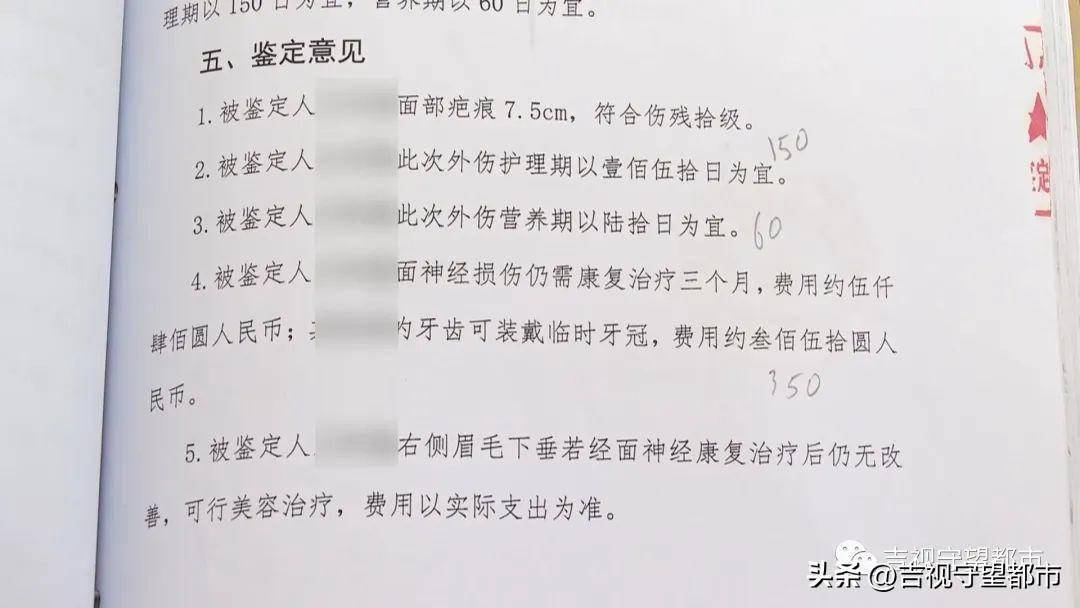 理期以150日为宜，营养期以60日为宜。
五、鉴定意见
1.被鉴定人 面部疤痕7.5cm，符合伤残拾级。
150
2.被鉴定人 此次外伤护理期以壹佰伍拾日为宜。
3.被鉴定人 此次外伤营养期以陆拾日为宜。 60
4.被鉴定人 面神经损伤仍需康复治疗三个月，费用约伍仟
肆佰圆人民币； 牙齿可装戴临时牙冠，费用约叁佰伍拾圆人
民币。 350
5.被鉴定人 右侧眉毛下垂若经面神经康复治疗后仍无改
善，可行美容治疗，费用以实际支出为准。
定
吉视守望都市
头条@吉视守望都市